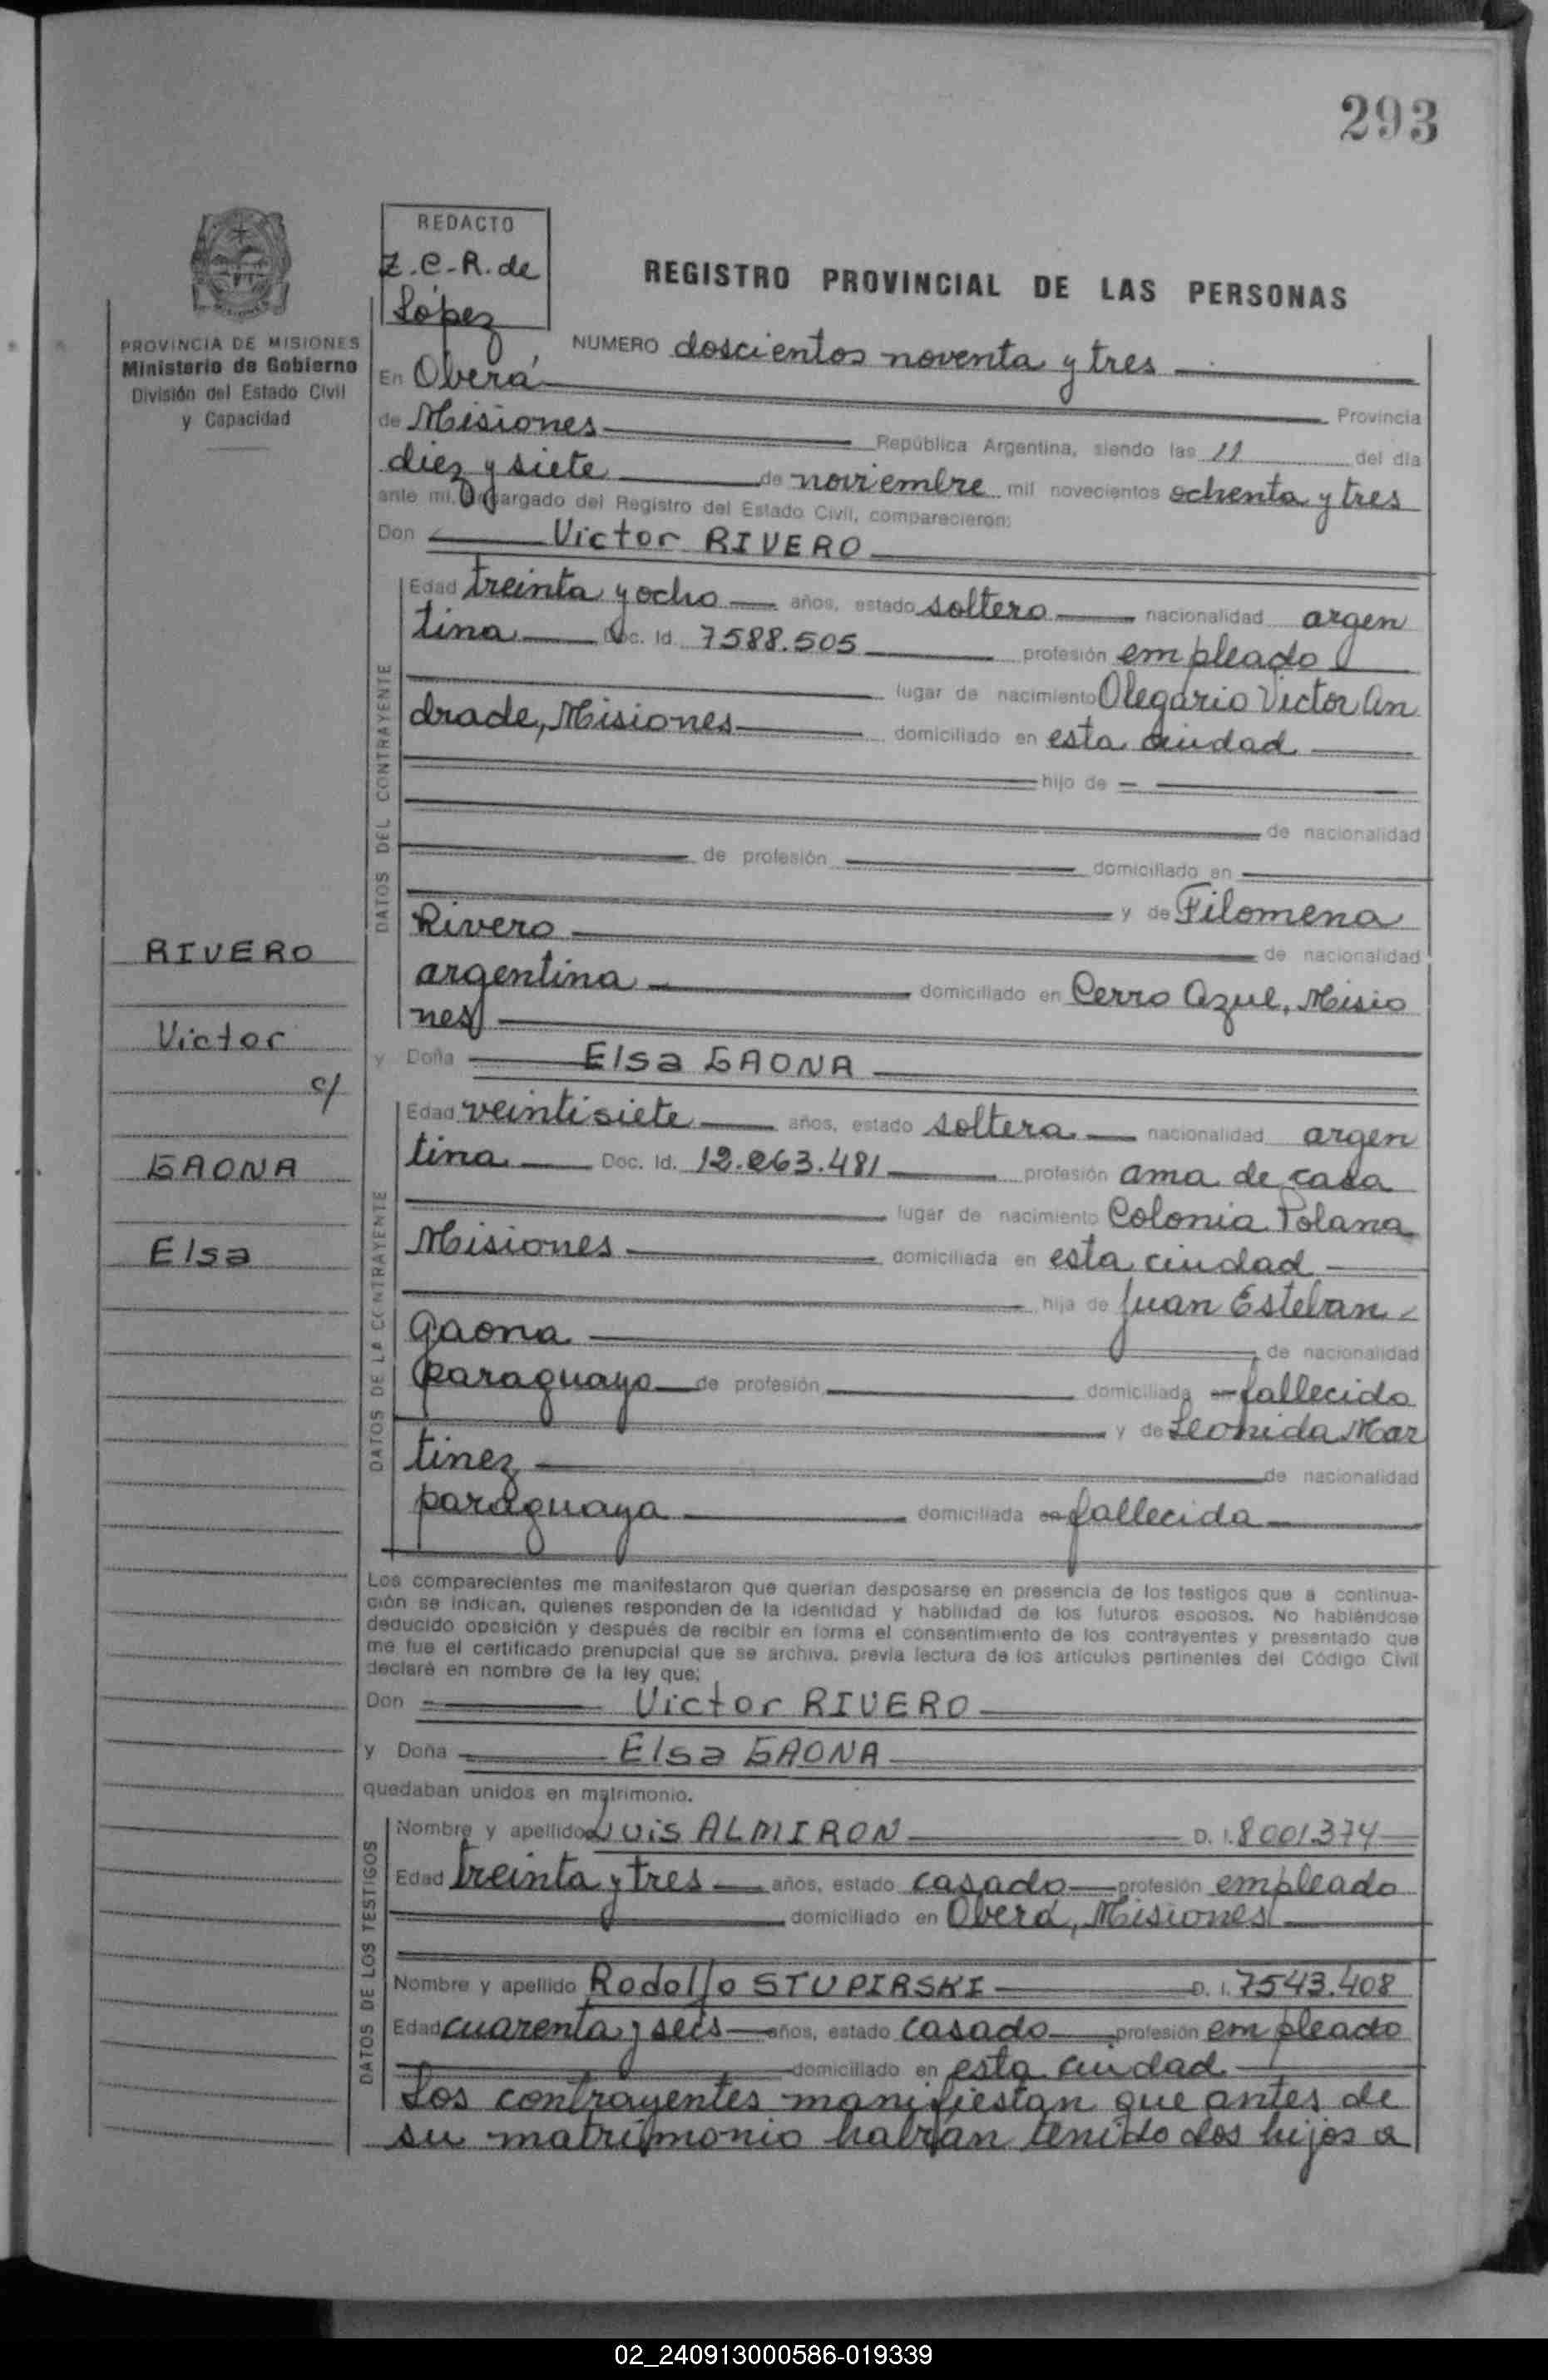 293
REDACTO
Z.C-R. de
López
REGISTRO PROVINCIAL DE LAS PERSONAS
PROVINCIA DE MISIONES
Ministerio de Gobierno
División del Estado Civil
y Capacidad
NUMERO doscientos noventa y tres
En Oberá Provincia
de Misiones República Argentina, siendo las 11 del día
diez y siete de noviembre mil novecientos ochenta y tres
ante mí, Encargado del Registro del Estado Civil, comparecieron:
Don Victor RIVERO
DATOS DEL CONTRAYENTE
Edad treinta y ocho años, estado soltero nacionalidad argen
tina Doc. Id. 7588.505 profesión empleado
lugar de nacimiento Olegario Victor An
drade, Misiones domiciliado en esta ciudad
hijo de
de nacionalidad
de profesión domiciliado en
y de Filomena
Rivero de nacionalidad
argentina domiciliado en Cerro Azul, Misio
nes
RIVERO
Victor
c/
GAONA
Elsa
y Doña Elsa GAONA
DATOS DE LA CONTRAYENTE
Edad veintisiete años, estado soltera nacionalidad argen
tina Doc. Id. 12.263.481 profesión ama de casa
lugar de nacimiento Colonia Polana
Misiones domiciliada en esta ciudad
hija de Juan Esteban
Gaona de nacionalidad
paraguayo de profesión domiciliada en fallecido
y de Leonida Mar
tinez de nacionalidad
paraguaya domiciliada en fallecida
Los comparecientes me manifestaron que querían desposarse en presencia de los testigos que a continua-
ción se indican, quienes responden de la identidad y habilidad de los futuros esposos. No habiéndose
deducido oposición y después de recibir en forma el consentimiento de los contrayentes y presentado que
me fue el certificado prenupcial que se archiva, previa lectura de los artículos pertinentes del Código Civil
declaré en nombre de la ley que:
Don Victor RIVERO
y Doña Elsa GAONA
quedaban unidos en matrimonio.
DATOS DE LOS TESTIGOS
Nombre y apellido Luis ALMIRON D. I. 8001.374
Edad treinta y tres años, estado casado profesión empleado
domiciliado en Oberá, Misiones
Nombre y apellido Rodolfo STUPIRSKI D. I. 7543.408
Edad cuarenta y seis años, estado casado profesión empleado
domiciliado en esta ciudad
Los contrayentes manifiestan que antes de
su matrimonio habían tenido dos hijos a
02_240913000586-019339